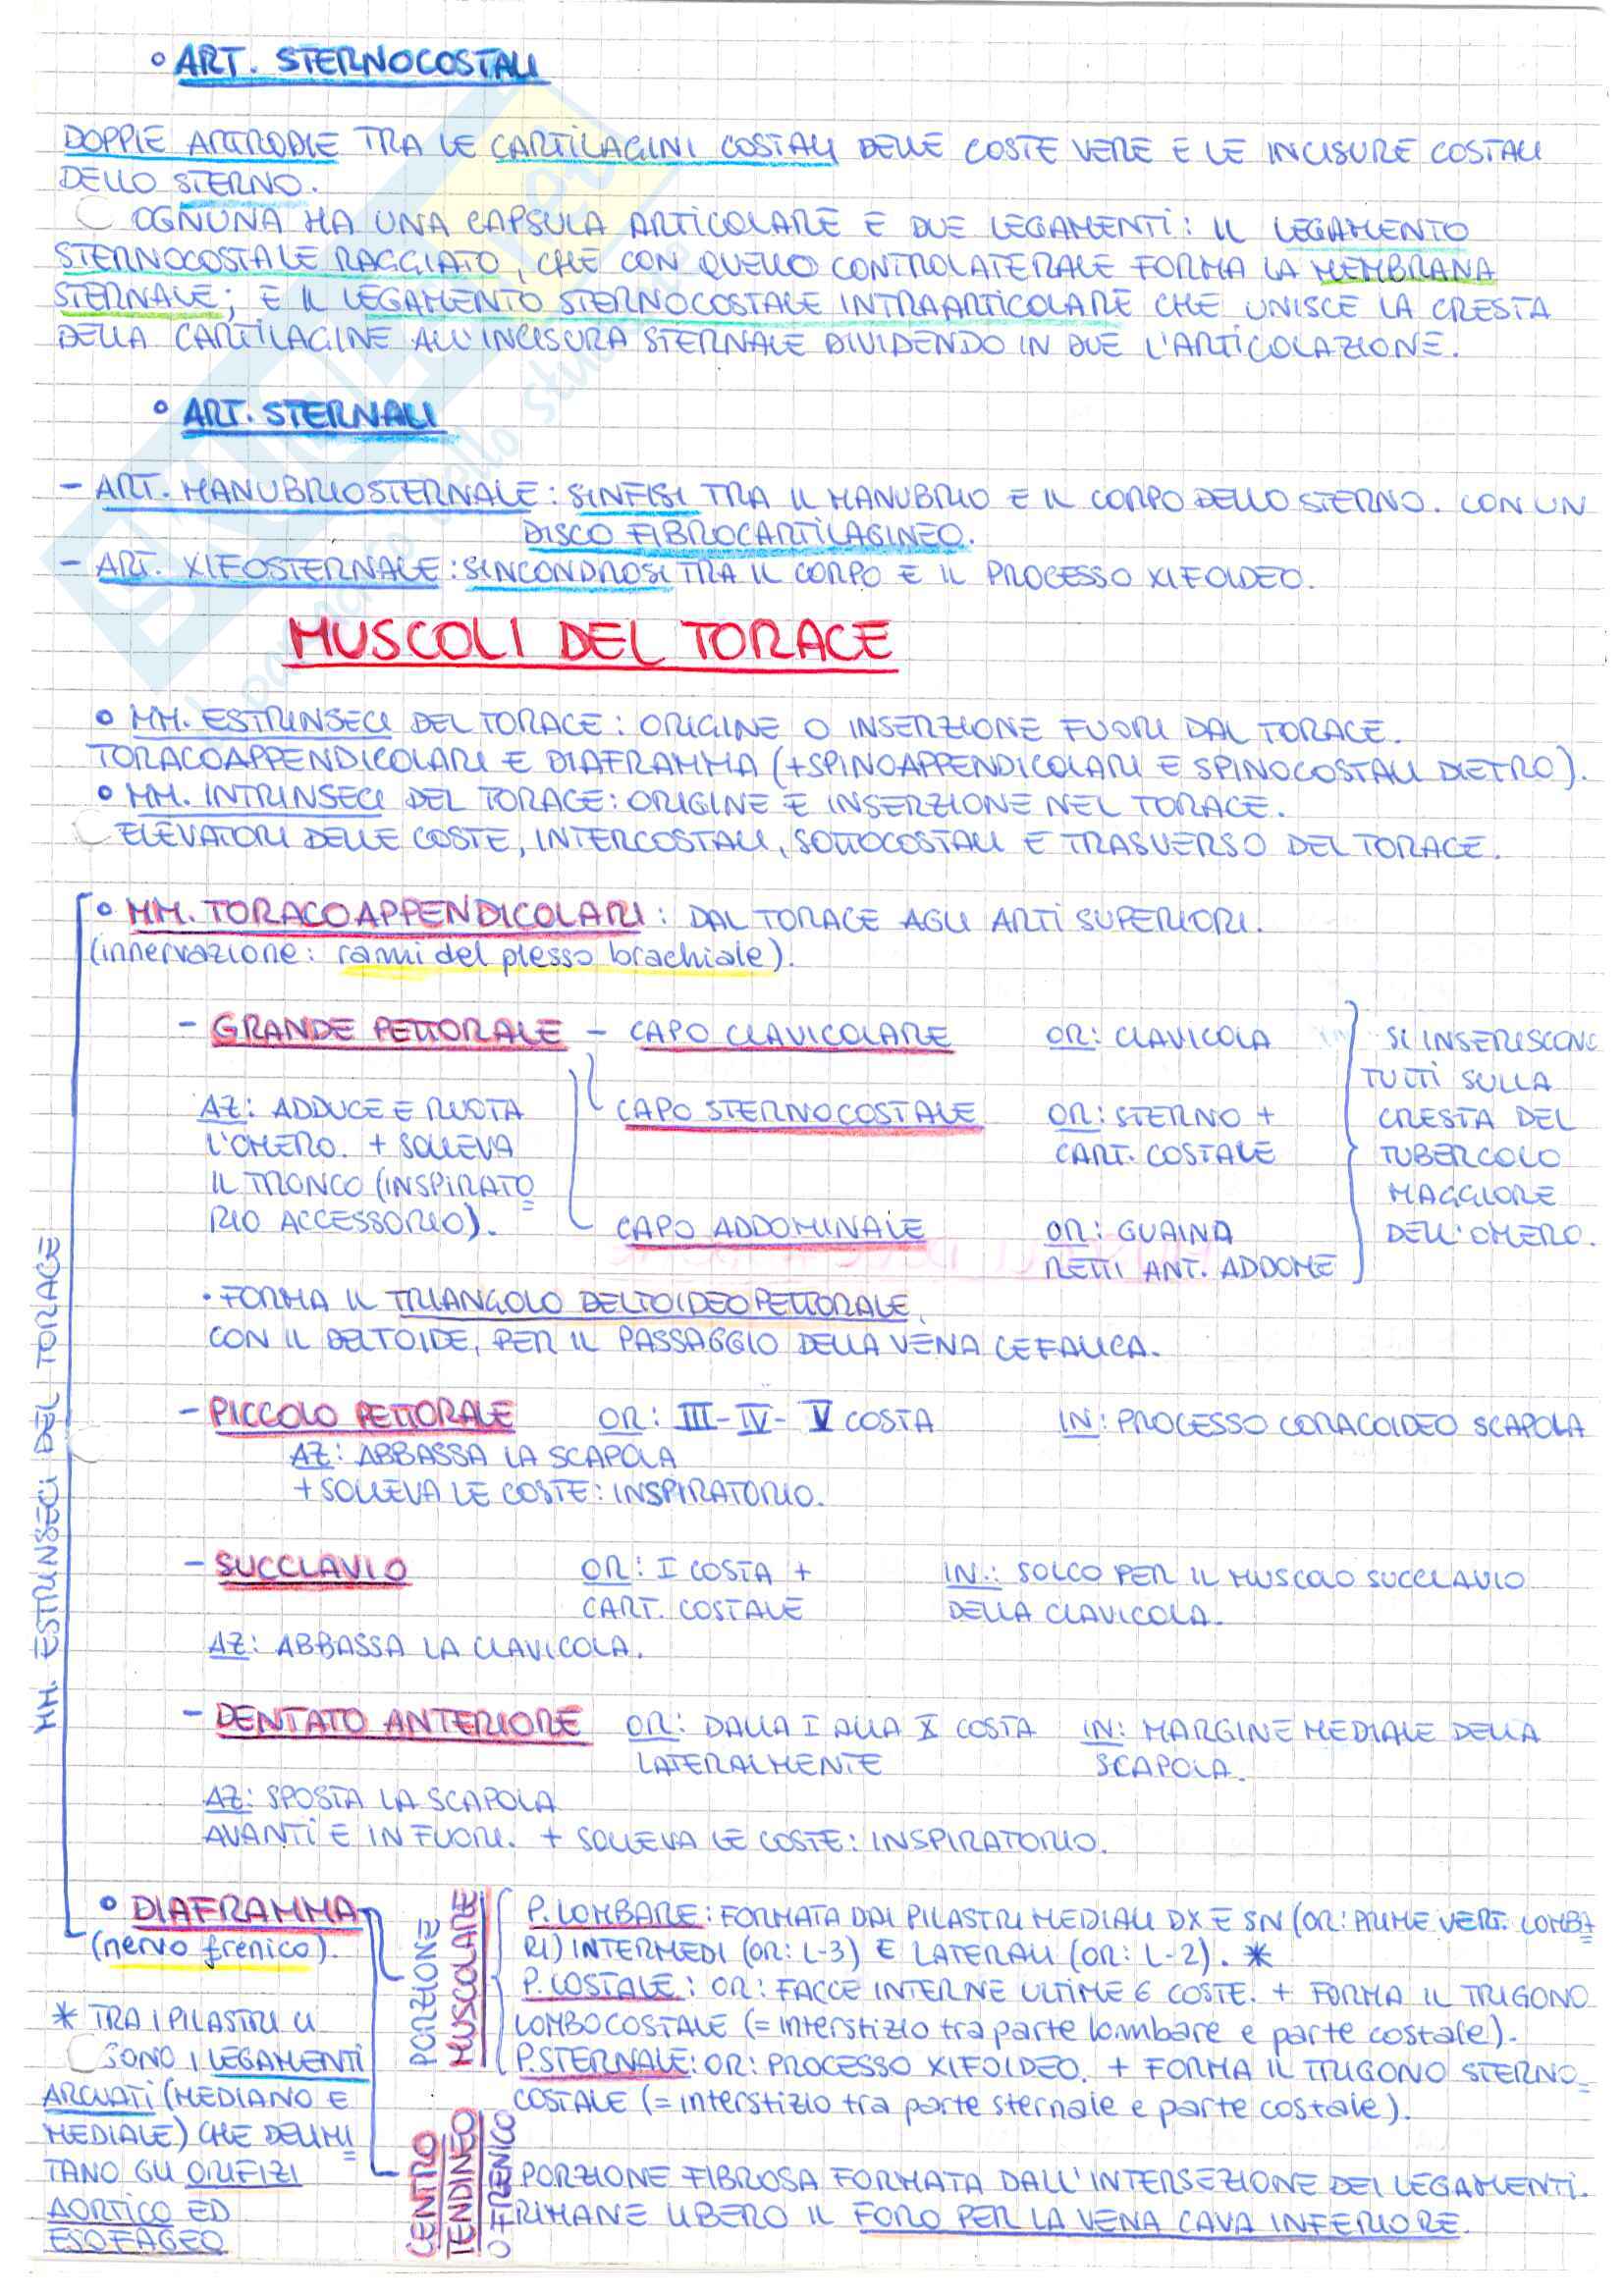 ° ART. STERNOCOSTALI
DOPPIE ARTRODIE TRA LE CARTILAGINI COSTALI DELLE COSTE VERE E LE INCISURE COSTALI
DELLO STERNO.
OGNUNA HA UNA CAPSULA ARTICOLARE E DUE LEGAMENTI: IL LEGAMENTO
STERNOCOSTALE RAGGIATO, CHE CON QUELLO CONTROLATERALE FORMA LA MEMBRANA
STERNALE; E IL LEGAMENTO STERNOCOSTALE INTRAARTICOLARE CHE UNISCE LA CRESTA
DELLA CARTILAGINE ALL'INCISURA STERNALE DIVIDENDO IN DUE L'ARTICOLAZIONE.
° ART. STERNALI
- ART. MANUBRIOSTERNALE: SINFISI TRA IL MANUBRIO E IL CORPO DELLO STERNO. CON UN
DISCO FIBROCARTILAGINEO.
- ART. XIFOSTERNALE: SINCONDROSI TRA IL CORPO E IL PROCESSO XIFOIDEO.
MUSCOLI DEL TORACE
° MM. ESTRINSECI DEL TORACE: ORIGINE O INSERZIONE FUORI DAL TORACE.
TORACOAPPENDICOLARI E DIAFRAMMA (+SPINOAPPENDICOLARI E SPINOCOSTALI DIETRO).
° MM. INTRINSECI DEL TORACE: ORIGINE E INSERZIONE NEL TORACE.
ELEVATORI DELLE COSTE, INTERCOSTALI, SOTTOCOSTALI E TRASVERSO DEL TORACE.
MM. ESTRINSECI DEL TORACE
° MM. TORACOAPPENDICOLARI: DAL TORACE AGLI ARTI SUPERIORI.
(innervazione: rami del plesso brachiale).
- GRANDE PETTORALE - CAPO CLAVICOLARE OR: CLAVICOLA
CAPO STERNOCOSTALE OR: STERNO +
CART. COSTALE
CAPO ADDOMINALE OR: GUAINA
RETTI ANT. ADDOME
SI INSERISCONO
TUTTI SULLA
CRESTA DEL
TUBERCOLO
MAGGIORE
DELL'OMERO.
AZ: ADDUCE E RUOTA
L'OMERO. + SOLLEVA
IL TRONCO (INSPIRATO
RIO ACCESSORIO).
• FORMA IL TRIANGOLO DELTOIDEOPETTORALE,
CON IL DELTOIDE, PER IL PASSAGGIO DELLA VENA CEFALICA.
- PICCOLO PETTORALE OR: III-IV-V COSTA IN: PROCESSO CORACOIDEO SCAPOLA
AZ: ABBASSA LA SCAPOLA
+ SOLLEVA LE COSTE: INSPIRATORIO.
- SUCCLAVIO OR: I COSTA + IN.: SOLCO PER IL MUSCOLO SUCCLAVIO
CART. COSTALE DELLA CLAVICOLA.
AZ: ABBASSA LA CLAVICOLA.
- DENTATO ANTERIORE OR: DALLA I ALLA X COSTA IN: MARGINE MEDIALE DELLA
LATERALMENTE SCAPOLA.
AZ: SPOSTA LA SCAPOLA
AVANTI E IN FUORI. + SOLLEVA LE COSTE: INSPIRATORIO.
° DIAFRAMMA
(nervo frenico).
PORZIONE
MUSCOLARE
P. LOMBARE: FORMATA DAI PILASTRI MEDIALI DX E SN (OR: PRIME VERT. LOMBA
RI) INTERMEDI (OR: L-3) E LATERALI (OR: L-2). *
P. COSTALE: OR: FACCE INTERNE ULTIME 6 COSTE. + FORMA IL TRIGONO
LOMBOCOSTALE (= interstizio tra parte lombare e parte costale).
P. STERNALE: OR: PROCESSO XIFOIDEO. + FORMA IL TRIGONO STERNO
COSTALE (= interstizio tra parte sternale e parte costale).
CENTRO
TENDINEO
O FRENICO
PORZIONE FIBROSA FORMATA DALL'INTERSEZIONE DEI LEGAMENTI.
RIMANE LIBERO IL FORO PER LA VENA CAVA INFERIORE.
* TRA I PILASTRI CI
SONO I LEGAMENTI
ARCUATI (MEDIANO E
MEDIALE) CHE DELIMI
TANO GLI ORIFIZI
AORTICO ED
ESOFAGEO